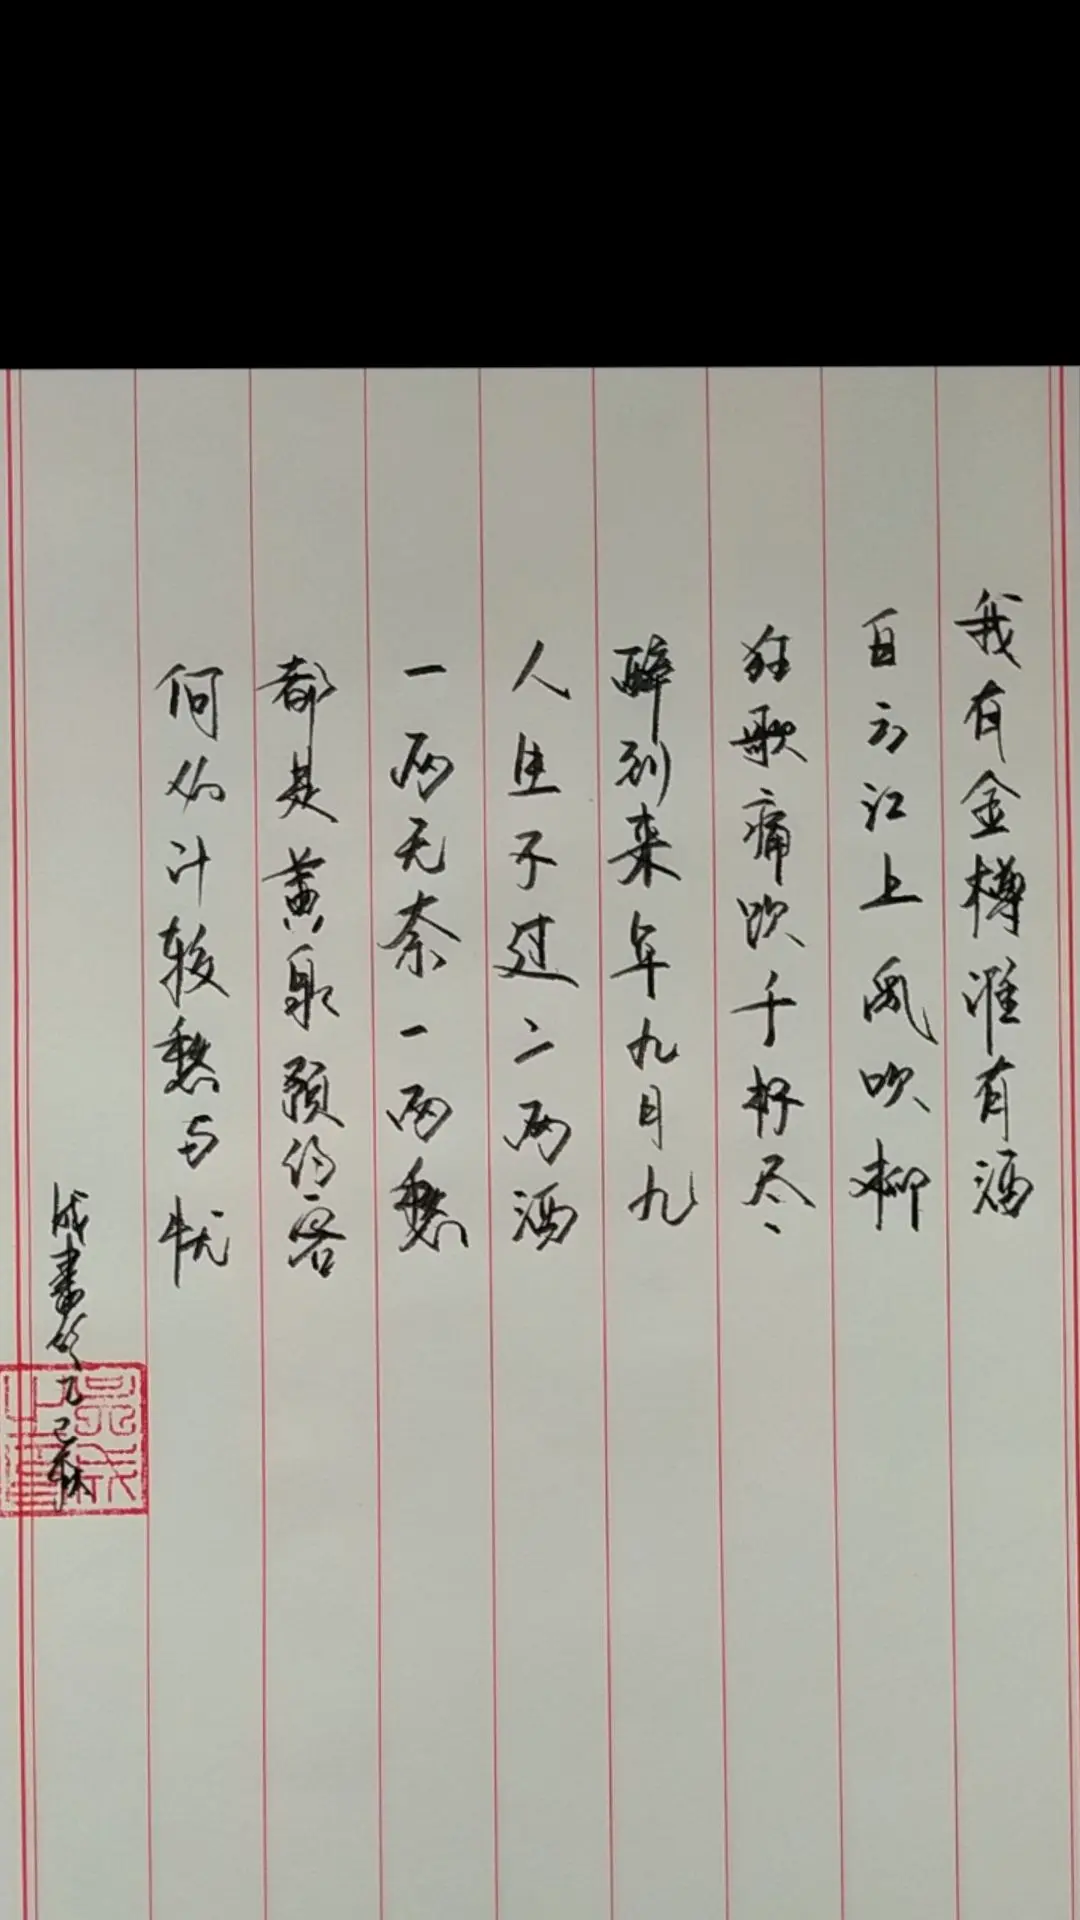 我有金樽谁有酒
自立江上风吹柳
狂歌痛饮千杯尽
醉别来年九月九
人生不过二两酒
一两无奈一两愁
都是黄泉预约客
何必计较愁与忧